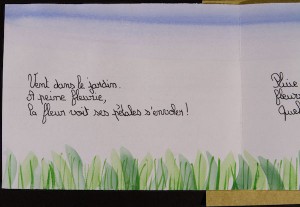 Vent dans le jardin.
A peine fleurie,
la fleur voit ses pétales s'envoler!
Pluie
fleur
Quel